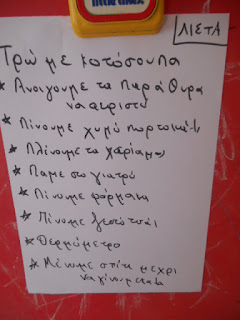 ΛΙΣΤΑ
Τρώμε κοτόσουπα
* Ανοιγουμε τα παράθυρα
να αεριστει
* Πίνουμε χυμό πορτοκάλι
* Πλίνουμε τα χέρια μας
* Παμε στο γιατρό
* Πίνουμε φάρμακα
* Πίνουμε ζεστό τσάι
* Θερμόμετρο
* Μένουμε σπίτι μέχρι
να γίνουμε καλα